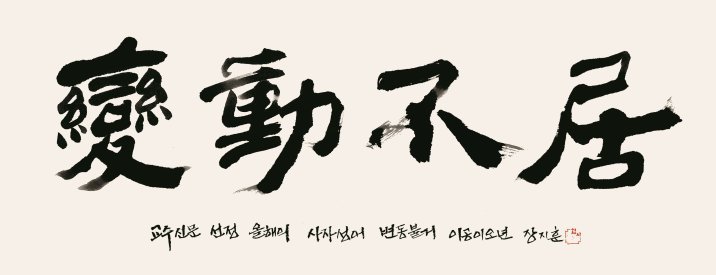 變動不居
교수신문 선정 올해의 사자성어 변동불거 이공이오년 장지훈